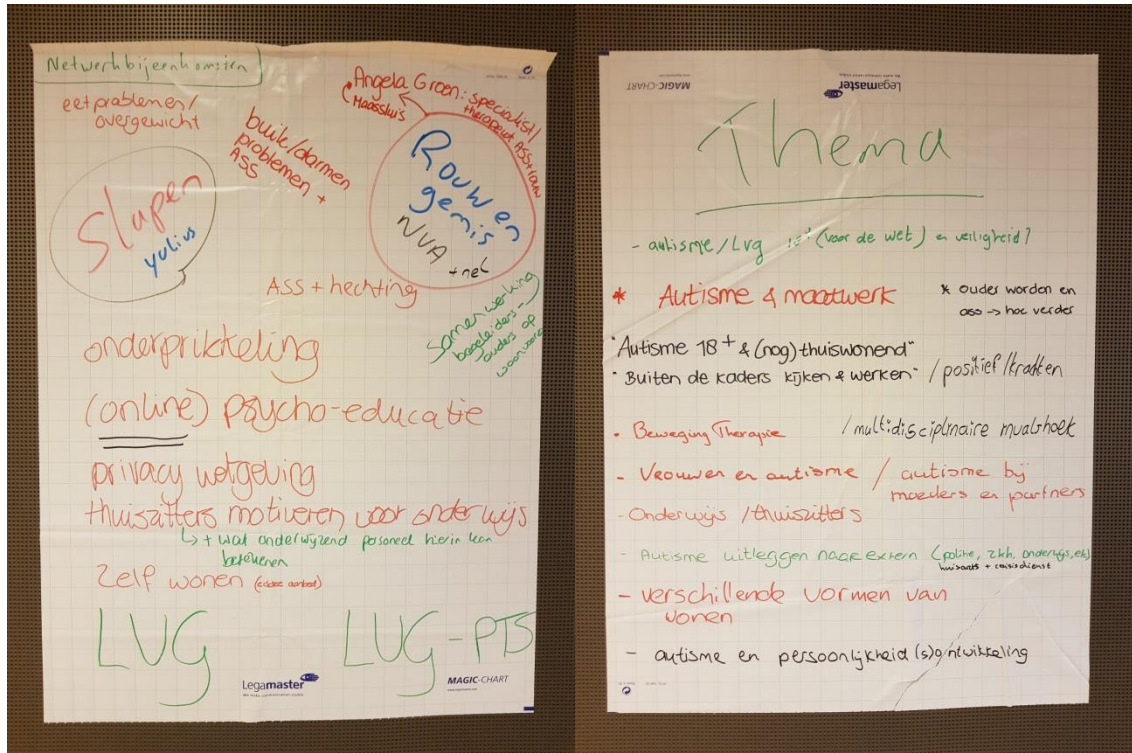 Netwerkbijeenkomsten
eetproblemen/
overgewicht
buik/darmen
problemen +
ASS
Angela Groen: specialist/
therapeut ASS+rouw
(Maassluis
Rouw en
gemis
NVA
+ net
Slapen
yulius
ASS + hechting
samenwerking
begeleiders -
ouders op
woonvoorz
onderprikkeling
(online) psycho-educatie
privacy wetgeving
thuiszitters motiveren voor onderwijs
↳ + wat onderwijzend personeel hierin kan
betekenen
Zelf wonen
LVG
LVG-PTS
Legamaster
MAGIC-CHART
Legamaster
MAGIC-CHART
Thema
- autisme/Lvg (voor de wet) en veiligheid?
* Autisme & maatwerk
* ouder worden en
ass → hoe verder
"Autisme 18+ & (nog) thuiswonend"
"Buiten de kaders kijken & werken" / positief/krachten
• Beweging Therapie
/ multidisciplinaire
- Vrouwen en autisme / autisme bij
moeders en partners
- Onderwijs / thuiszitters
- Autisme uitleggen naar extern (politie, zkh, onderwijs, etc)
huisarts + crisisdienst
- verschillende vormen van
wonen
- autisme en persoonlijkheid(s)ontwikkeling